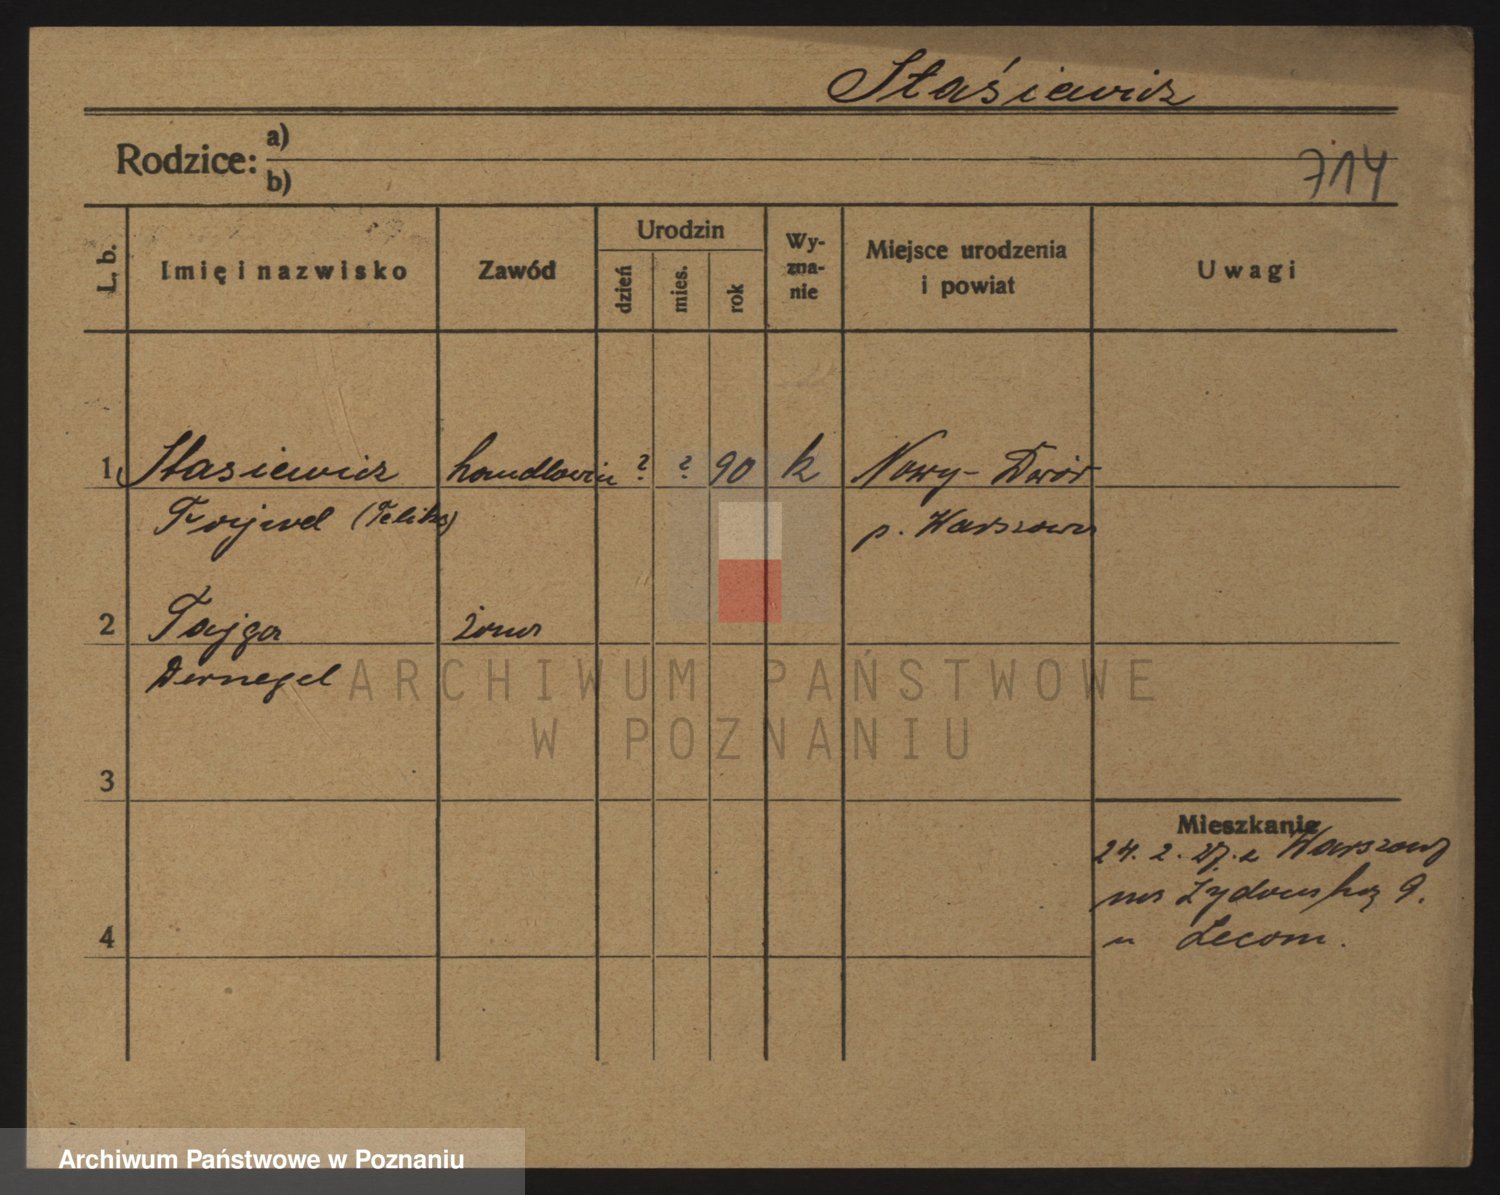 Staśiewicz
Rodzice: a)
b)
714
L. b.
Imię i nazwisko
Zawód
Urodzin
dzień
mies.
rok
Wy-
zna-
nie
Miejsce urodzenia
i powiat
Uwagi
1 Stasiewicz handlowiec ? ? 90 k Nowy-Dwór
Frajwel (Feliks) p. Warszawa
2 Fajga żona
Dernegel
3
4
Mieszkanie
24. 2. 27. z Warszawy
na Żydowską 9.
u
ARCHIWUM PAŃSTWOWE
W POZNANIU
Archiwum Państwowe w Poznaniu